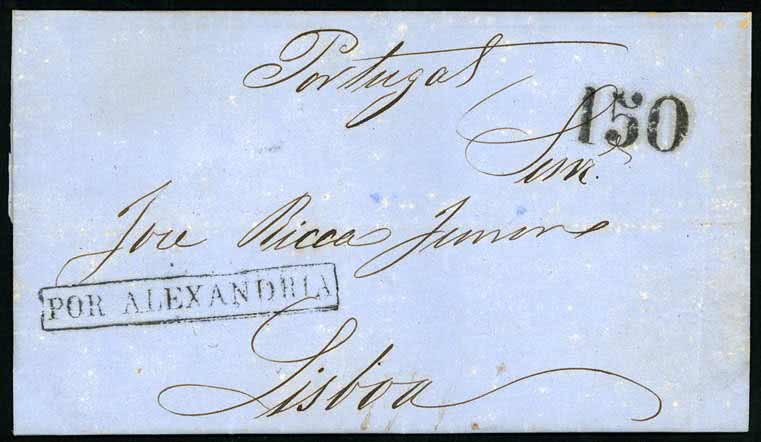 Portugal
150
Snr.
Jose Ricca Junior
POR ALEXANDRIA
Lisboa